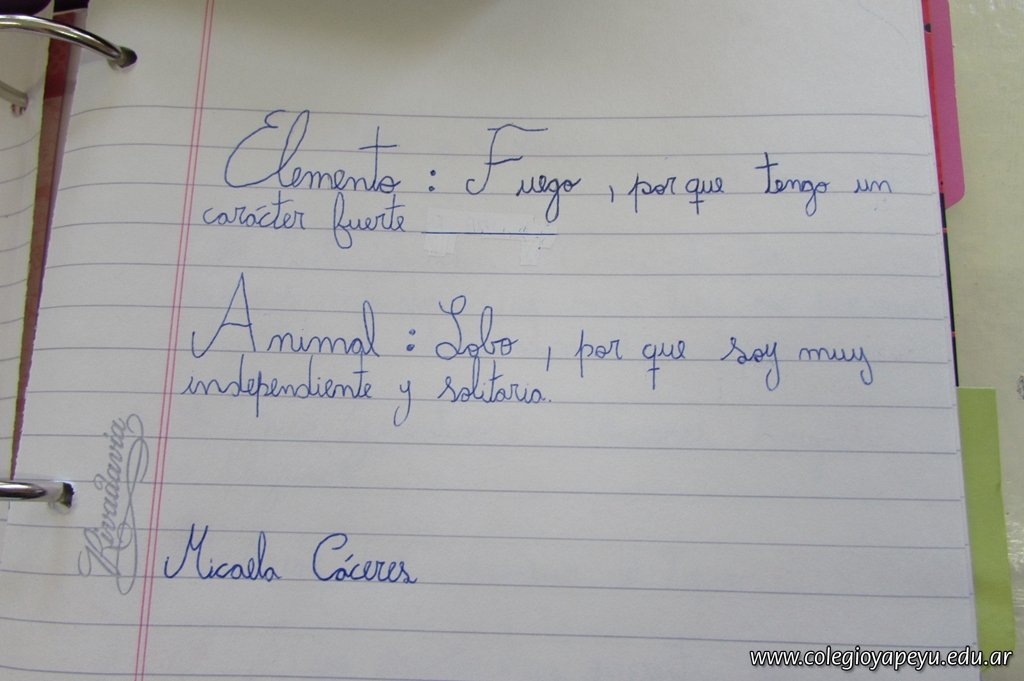 Elemento : Fuego , por que tengo un
carácter fuerte
Animal : Lobo , por que soy muy
independiente y solitaria.
Rivadavia
Micaela Cáceres
www.colegioyapeyu.edu.ar